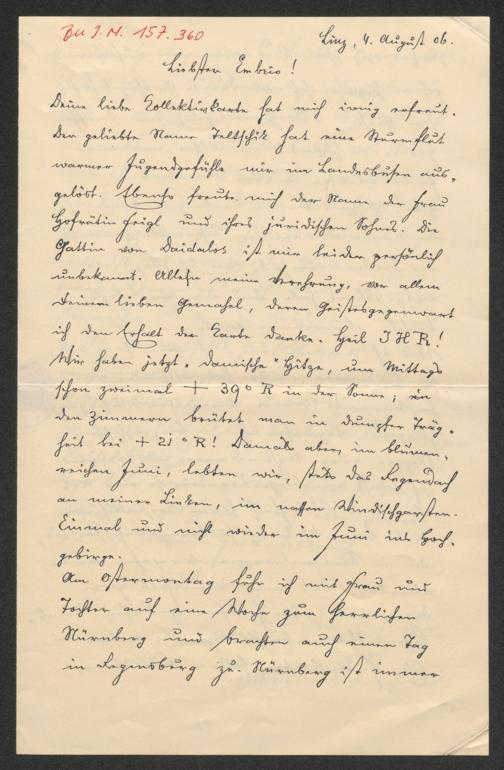 Zu I.N. 157.360
Linz, 4. August 06.
Liebster Embrio!
Deine liebe Kollektivkarte hat mich innig erfreut.
Der geliebte Name Teltschik hat eine Sturmflut
warmer Jugendgefühle mir im Landesbusen aus-
gelöst. Ebenso freute mich der Name der Frau
Hofrätin Feigl und ihres juridischen Sohnes. Die
Gattin von Daidalos ist mir leider persönlich
unbekannt. Allen meine Verehrung, vor allem
Deinem lieben Gemahel, deren Geistesgegenwart
ich den Erhalt der Karte danke. Heil IHR!
Wir haben jetzt „damische" Hitze, um Mittags
schon zweimal + 39° R in der Sonne; in
den Zimmern brütet man in dumpfer Träg-
heit bei + 21° R! Damals aber, im blumen-
reichen Juni, lebten wir, stets das Regendach
an meiner Linken, im nassen Windischgarsten.
Einmal und nicht wieder im Juni ins Hoch-
gebirge.
Am Ostermontag fuhr ich mit Frau und
Tochter auf eine Woche zum herrlichen
Nürnberg und brachten auch einen Tag
in Regensburg zu. Nürnberg ist immer